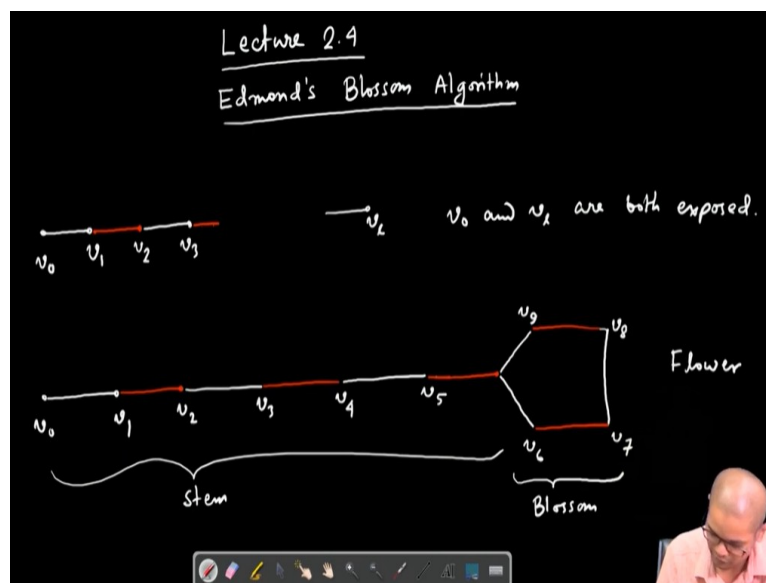 Lecture 2.4
Edmond's Blossom Algorithm
v₀ v₁ v₂ v₃ vₗ v₀ and vₗ are both exposed.
v₉ v₈
Flower
v₀ v₁ v₂ v₃ v₄ v₅
v₆ v₇
Stem Blossom